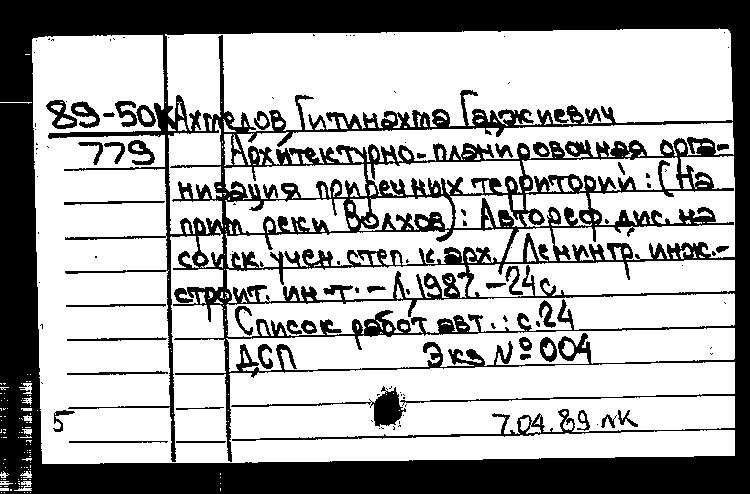 89-50к Ахмедов Гитинахма Гаджиевич
779 Архитектурно-планировочная орга-
низация приречных территорий : (На
прим. реки Волхов) : Автореф. дис. на
соиск. учен. степ. к. арх. / Ленингр. инж.-
строит. ин-т. - Л. 1987. - 24 с.
Список работ авт. : с. 24
ДСП Экз № 004
5 7.04.89 лк